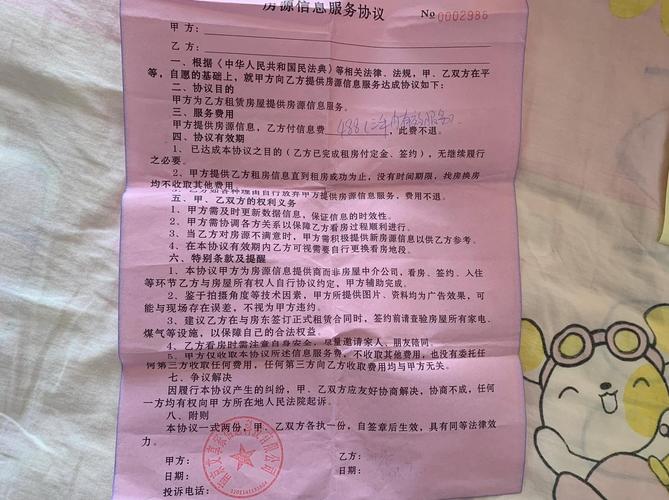 房源信息服务协议 No 0002986
甲方：
乙方：
一、根据《中华人民共和国民法典》等相关法律、法规，甲、乙双方在平
等，自愿的基础上，就甲方向乙方提供房源信息服务达成协议如下：
二、协议目的
甲方为乙方租赁房屋提供房源信息服务。
三、服务费用
甲方提供房源信息，乙方付信息费 488（三年内有效服务），此费不退。
四、协议有效期
1、已达成本协议之目的（乙方已完成租房付定金、签约），无继续履行
之必要。
2、甲方提供乙方租房信息直到租房成功为止，没有时间期限，找房换房
均不收取其他费用
3、乙方如各种理由自行放弃甲方提供房源信息服务，费用不退。
五、甲、乙双方的权利义务
1、甲方需及时更新数据信息，保证信息的时效性。
2、甲方需协调各方关系以保障乙方看房过程顺利进行。
3、当乙方对房源不满意时，甲方需积极提供新房源信息以供乙方参考。
4、在本协议有效期内乙方可视需要自行更换看房地段。
六、特别条款及提醒
1、本协议甲方为房源信息提供商而非房屋中介公司，看房、签约、入住
等环节乙方与房屋权利人自行协议约定，甲方辅助完成。
2、鉴于拍摄角度等技术因素，甲方所提供图片、资料均为广告效果，可
能与现场存在误差，不视为甲方违约。
3、建议乙方在与房东签订正式租赁合同时，签约前请查验房屋所有家电、
煤气等设施，以保障自己的合法权益。
4、乙方看房时需注意自身安全，尽量邀请家人、朋友陪同。
5、甲方仅收取本协议所述信息服务费，不收取其他费用，也没有委托任
何第三方收取任何费用，任何第三方向乙方收取费用均与甲方无关。
七、争议解决
因履行本协议产生的纠纷，甲、乙双方应友好协商解决，协商不成，任何
一方均有权向甲方所在地人民法院起诉。
八、附则
本协议一式两份，甲、乙双方各执一份，自签章后生效，具有同等法律效
力。
甲方： 乙方：
日期： 日期：
投诉电话：